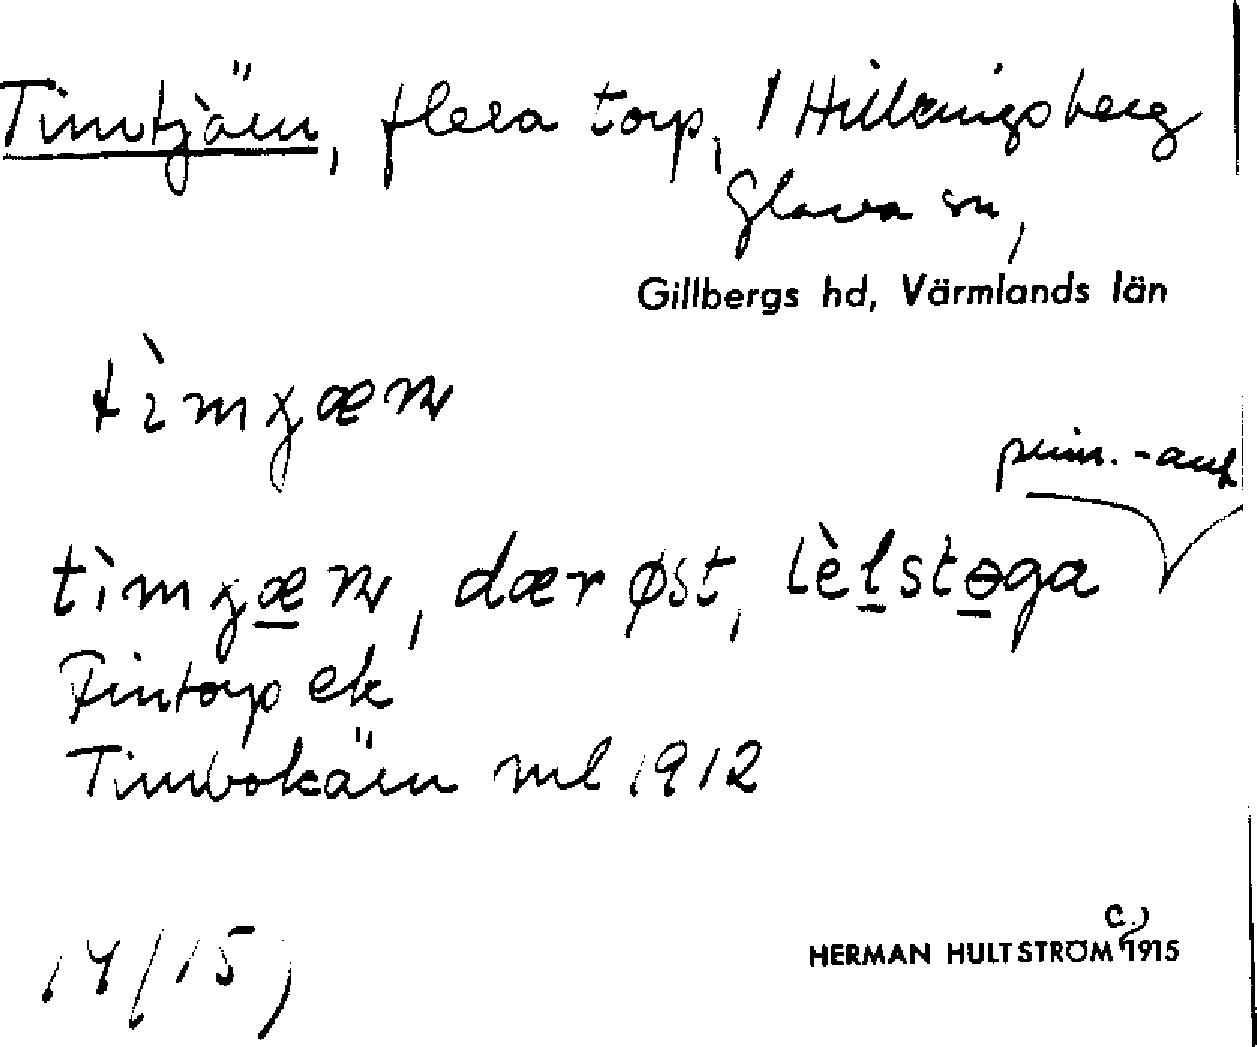 Timtjärn, flera torp, / Hillringsberg
Glava sn,
Gillbergs hd, Värmlands län
tìmɣæṇ
prim. -ant
tìmɣæṇ, dær øst, lèlstɵga
Fintorp ek
Timbokärn ml 1912
14/15,
HERMAN HULTSTRÖM c. 1915